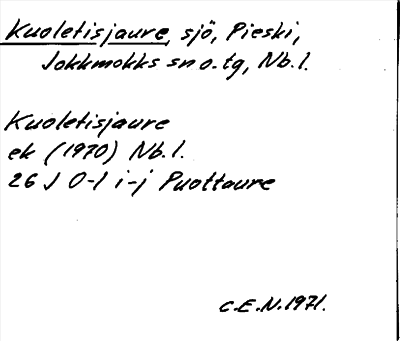 Kuoletisjaure, sjö, Pieski,
Jokkmokks sn o. tg, Nb. l.
Kuoletisjaure
ek (1970) Nb. l.
26 J 0-1 i-j Puottaure
C.E.N. 1971.